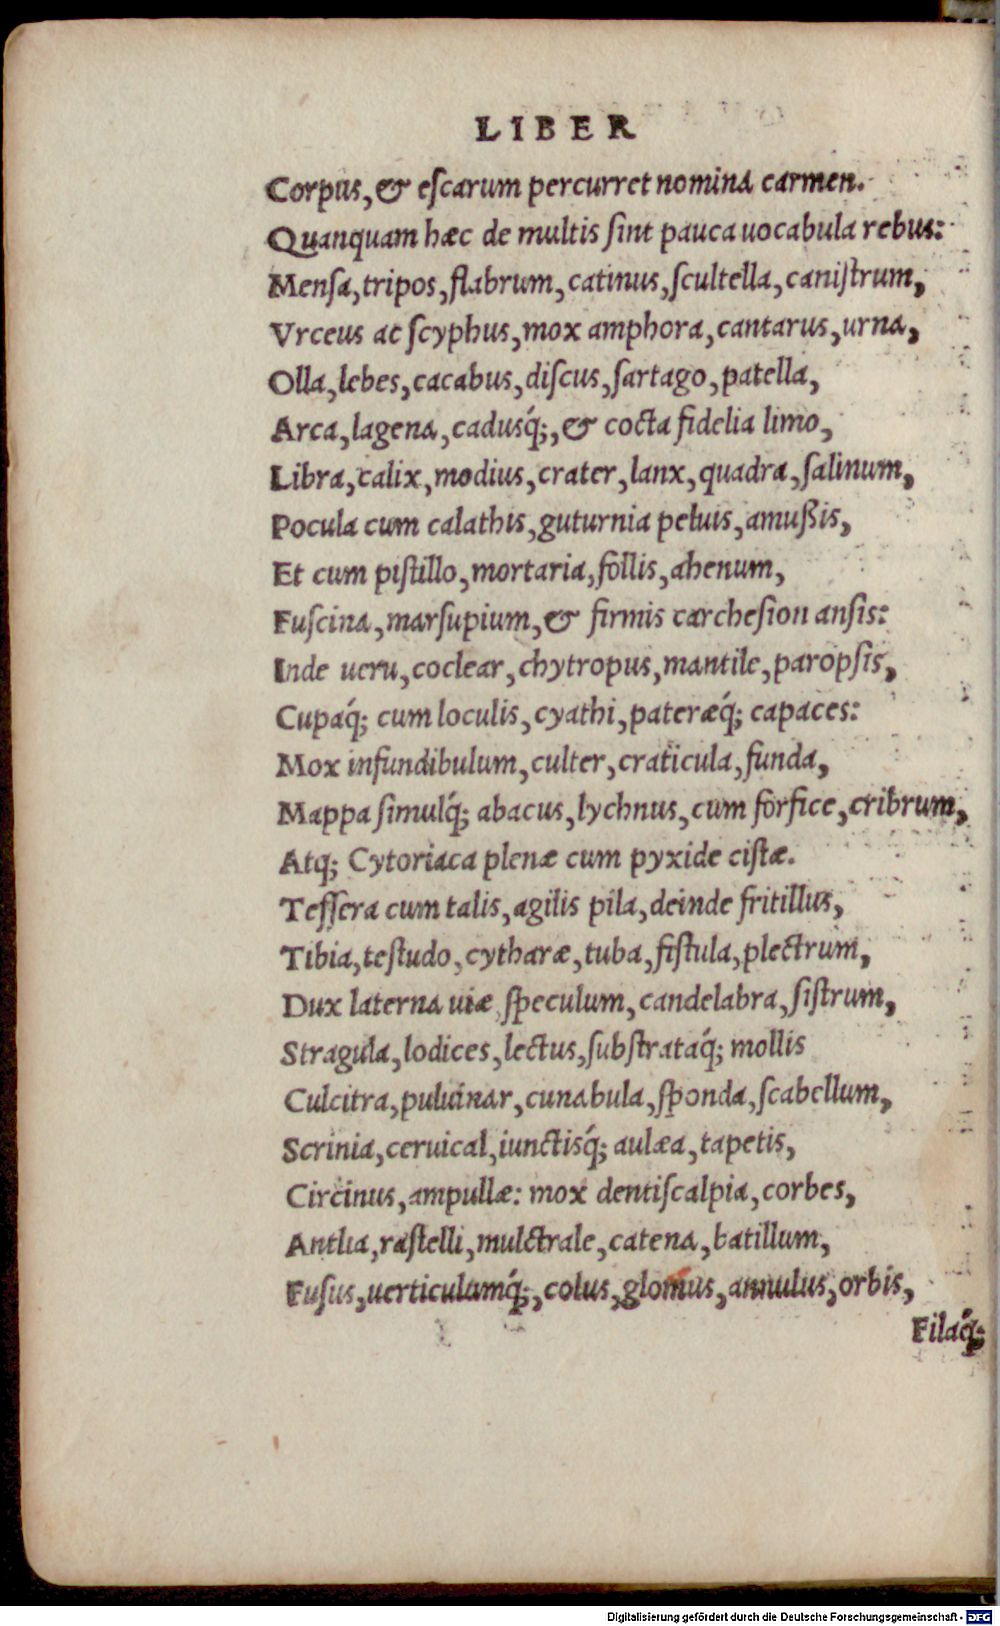 LIBER
Corpus, & eſcarum percurret nomina carmen.
Quanquam hæc de multis ſint pauca uocabula rebus:
Menſa, tripos, flabrum, catinus, ſcultella, caniſtrum,
Vrceus ac ſcyphus, mox amphora, cantarus, urna,
Olla, lebes, cacabus, diſcus, ſartago, patella,
Arca, lagena, cadusq́;, & cocta fidelia limo,
Libra, calix, modius, crater, lanx, quadra, ſalinum,
Pocula cum calathis, guturnia peluis, amußis,
Et cum piſtillo, mortaria, follis, ahenum,
Fuſcina, marſupium, & firmis carcheſion anſis:
Inde ueru, coclear, chytropus, mantile, paropſis,
Cupaq́; cum loculis, cyathi, pateræq́; capaces:
Mox infundibulum, culter, craticula, funda,
Mappa ſimulq́; abacus, lychnus, cum forfice, cribrum,
Atq; Cytoriaca plenæ cum pyxide ciſtæ.
Teſſera cum talis, agilis pila, deinde fritillus,
Tibia, teſtudo, cytharæ, tuba, fiſtula, plectrum,
Dux laterna uiæ, ſpeculum, candelabra, ſiſtrum,
Stragula, lodices, lectus, ſubſtrataq́; mollis
Culcitra, puluinar, cunabula, ſponda, ſcabellum,
Scrinia, ceruical, iunctisq́; aulæa, tapetis,
Circinus, ampullæ: mox dentiſcalpia, corbes,
Antlia, raſtelli, mulctrale, catena, batillum,
Fuſus, uerticulumq́;, colus, glomus, annulus, orbis,
Filaq́;
Digitalisierung gefördert durch die Deutsche Forschungsgemeinschaft - DFG